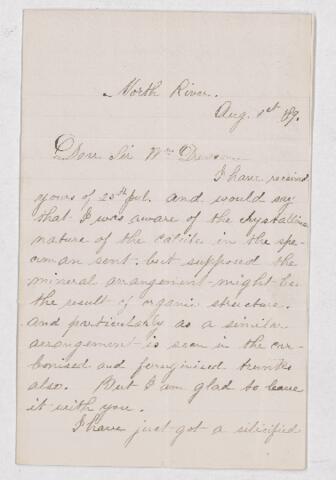 North River.
Aug. 1st /89.
Dear Sir Wm Dawson
I have received
yours of 25th Jul. and would say
that I was aware of the chrystalline
nature of the calcite in the spe-
cman sent. but supposed the
mineral arrangement might be
the result of organic structure.
and particularly as a similar
arrangement is seen in the car-
bonised and feruginised trunks
also. But I am glad to leave
it with you.
I have just got a silicified